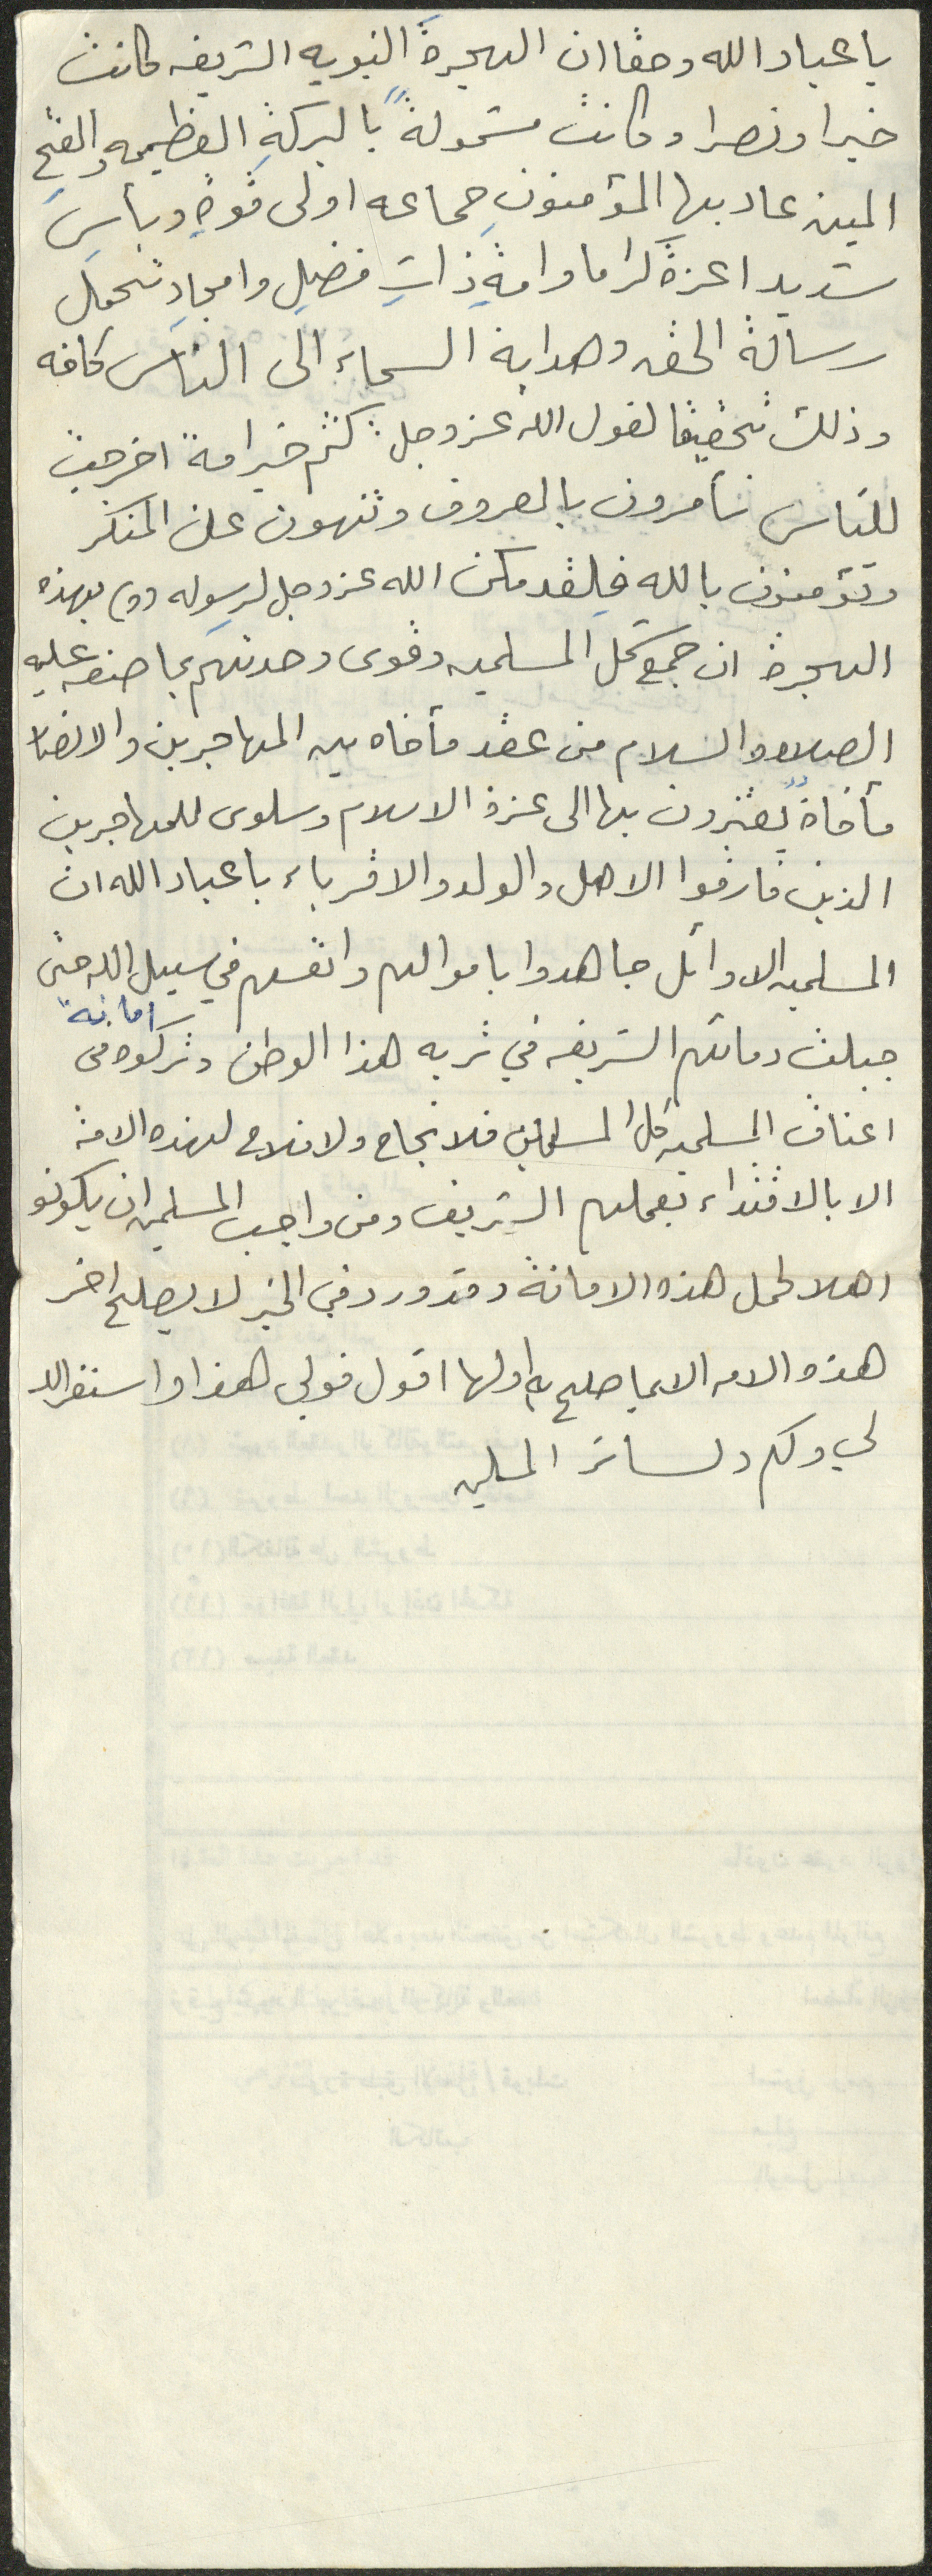 يا عباد الله وحقا ان الهجرة النبويه الشريفه كانت
خيرا ونصرا وكانت مشمولةً بالبركةِ العظيمه والفتحِ
المبين عاد بها المؤمنون جماعه اولى قوةٍ وبأسِ
شديد اعزةً كراما وامةٍ ذاتِ فضلٍ وامجادٍ تحمل
رسالة الحق وهداية السماء الى الناس كافه
وذلك تحقيقا لقول الله عز وجل : كنتم خير امة اخرجت
للناس تأمرون بالمعروف وتنهون عن المنكر
وتؤمنون بالله فلقد مكن الله عز وجل لرسوله (ص) بهذه
الهجرة ان جمع شمل المسلمين وقوى وحدتهم بما صنعه عليه
الصلاه والسلام من عقد مأخاه بين المهاجرين والانصار
مأخاةً يعتزون بها الى عزة الاسلام وسلوى للمهاجرين
الذين فارقوا الاهل والولد والاقرباء يا عباد الله ان
المسلمين الاوائل جاهدوا باموالهم وانفسهم في سبيل الله حتى
امانةً
جبلت دمائهم الشريفه في تربه هذا الوطن وتركوه في
اعناق المسلمين كل المسلمين فلا نجاح ولا فلاح لهذه الامة
الا بالاقتداء بعملهم الشريف ومن واجب المسلمين ان يكونو
اهلا لحمل هذه الامانة وقد ورد في الخبر لا يصلح اخر
هذه الامه الا بما صلح به اولها اقول قولي هذا واستغفر الله
لي ولكم ولسائر المسلمين